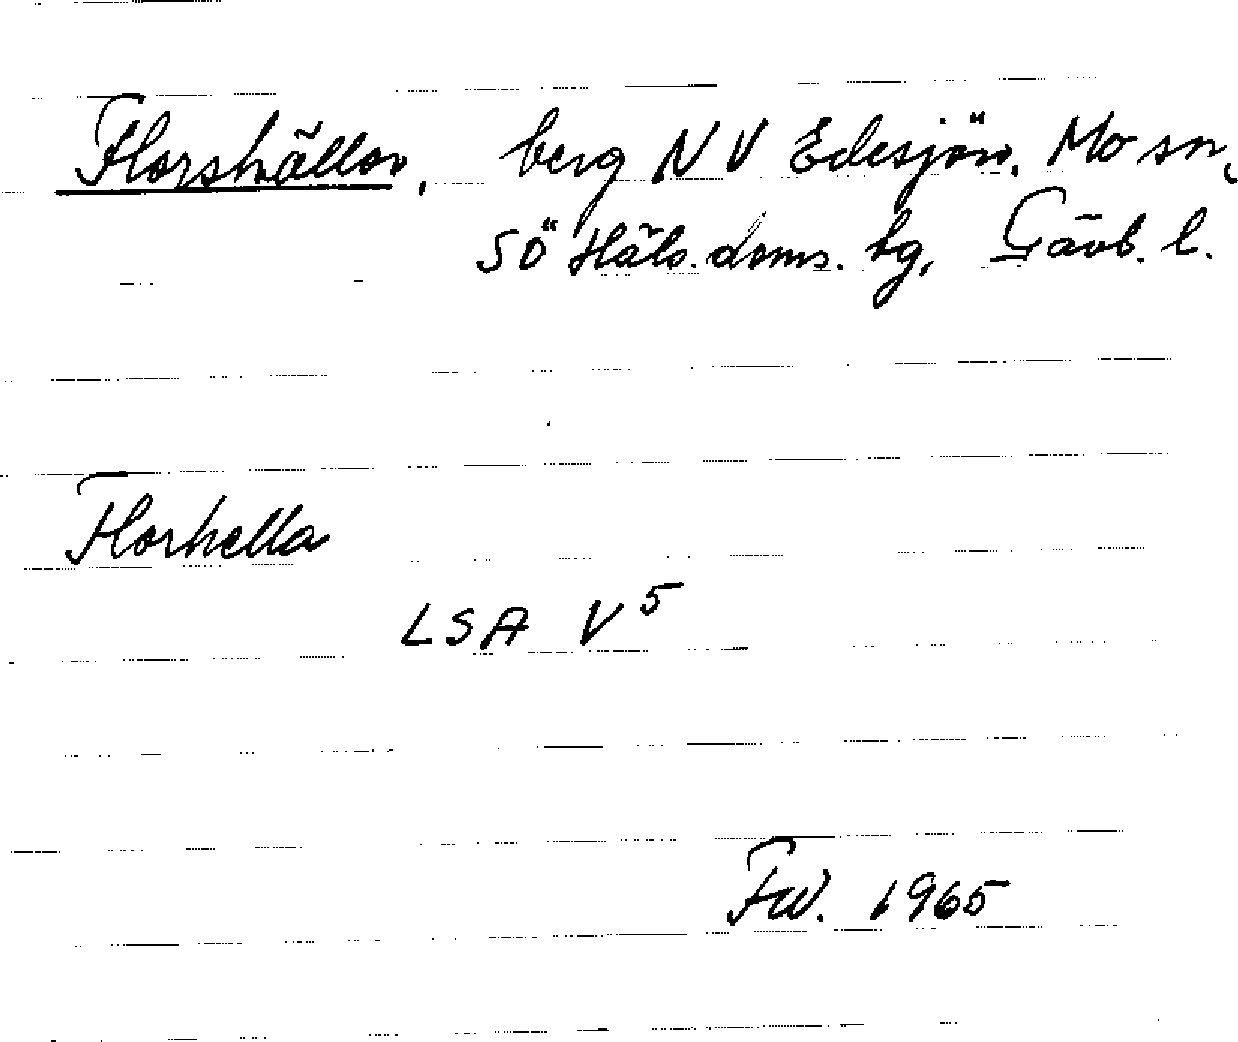 Florshällor, berg NV Edesjön. Mo sn,
SÖ Häls. doms. hg, Gävb. l.
Florhella
LSA V⁵
Fw. 1965